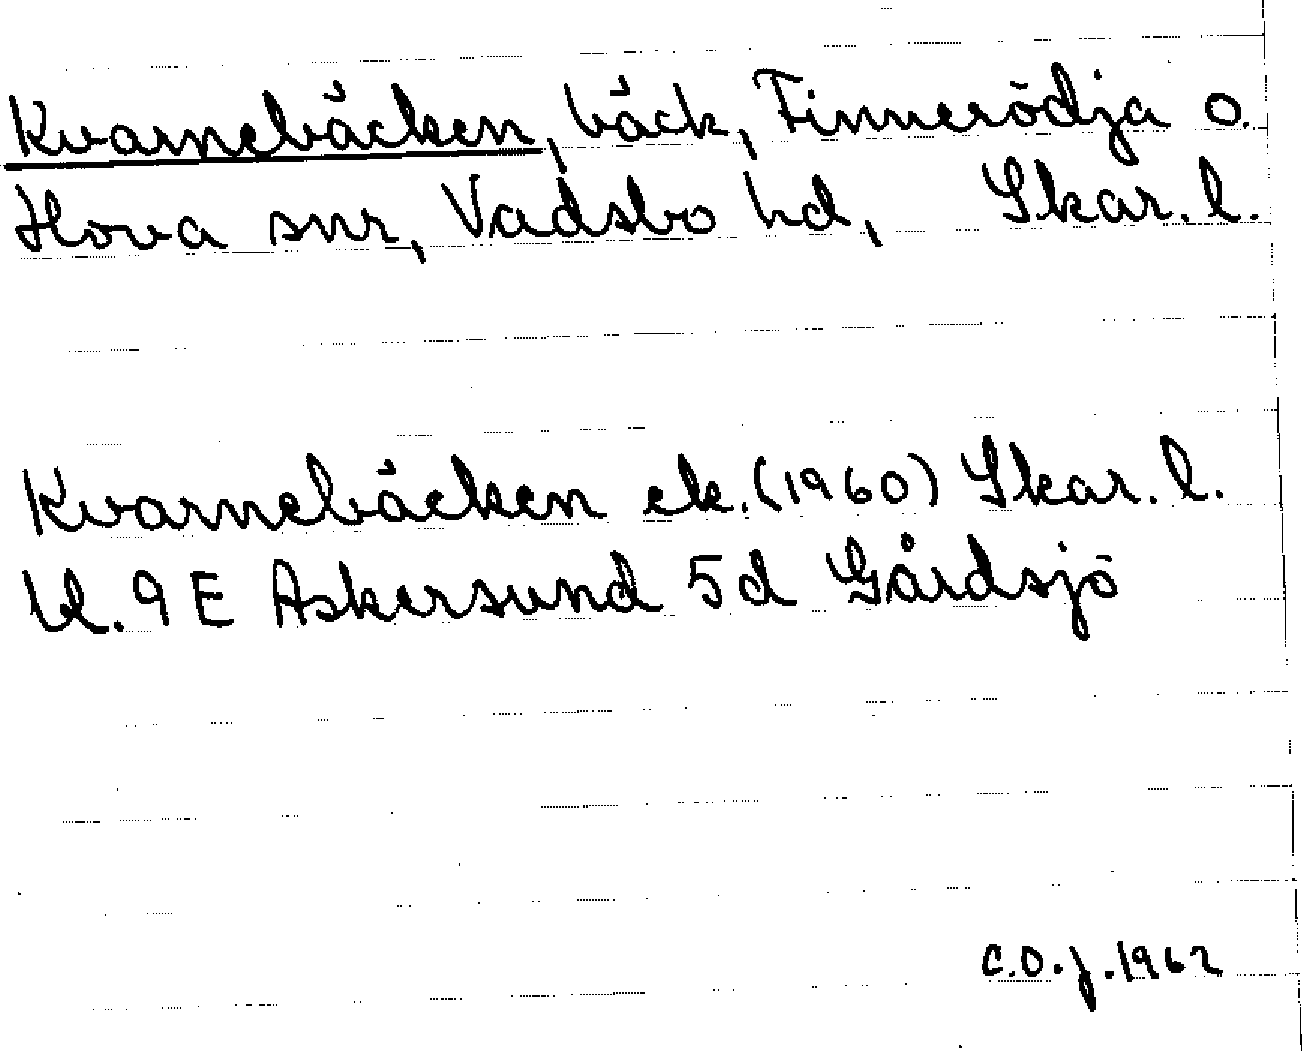 Kvarnebäcken, bäck, Finnerödja o.
Hova snr, Vadsbo hd, Skar. l.
Kvarnebäcken ek. (1960) Skar. l.
bl. 9 E Askersund 5d Gårdsjö
C.O.J. 1962